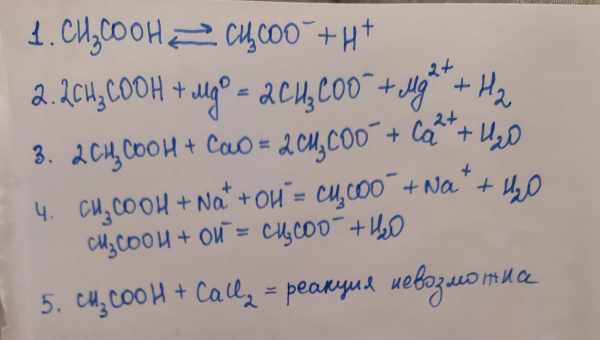 1. CH₃COOH ⇄ CH₃COO⁻ + H⁺
2. 2CH₃COOH + Mg⁰ = 2CH₃COO⁻ + Mg²⁺ + H₂
3. 2CH₃COOH + CaO = 2CH₃COO⁻ + Ca²⁺ + H₂O
4. CH₃COOH + Na⁺ + OH⁻ = CH₃COO⁻ + Na⁺ + H₂O
CH₃COOH + OH⁻ = CH₃COO⁻ + H₂O
5. CH₃COOH + CaCl₂ = реакция невозможна